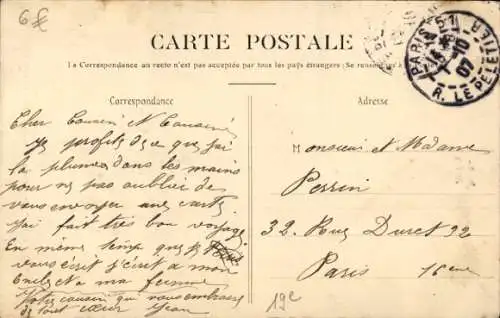 6€
CARTE POSTALE
La Correspondance au recto n'est pas acceptée par tous les pays étrangers (Se renseigner à la Poste)
PARIS
10
07
R. LE PELETIER
Correspondance
Adresse
Cher Cousin et Cousine
Je profite de ce que j'ai
la plume dans les mains
pour ne pas oublier de
vous envoyer une carte
j'ai fait très bon voyage
En même temps que je
vous écrit j'écrit a mon
Oncle et a ma femme
Votre cousin qui vous embrasse
de tout cœur Jean
Monsieur et Madame
Perrin
32. Rue Duret 32
Paris 16eme
19e